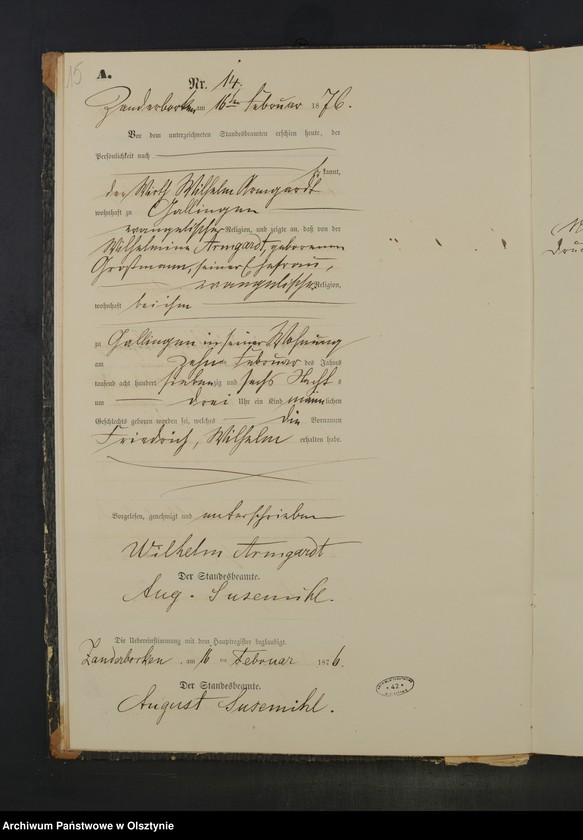 15
A.
Nr. 14.
Zanderborken am 16ten Februar 1876.
Vor dem unterzeichneten Standesbeamten erschien heute, der
Persönlichkeit nach
kannt,
der Wirth Wilhelm Armgardt
wohnhaft zu Gallingen
evangelischer Religion, und zeigte an, daß von der
Wilhelmine Armgardt, geborenen
Großmann, seiner Ehefrau,
evangelischer Religion,
wohnhaft bei ihm
zu Gallingen in seiner Wohnung
am zehn Februar des Jahres
tausend acht hundert siebenzig und sechs Nachts
um drei Uhr ein Kind männlichen
Geschlechts geboren worden sei, welches die Vornamen
Friedrich, Wilhelm erhalten habe.
Vorgelesen, genehmigt und unterschrieben
Wilhelm Armgardt
Der Standesbeamte.
Aug. Susemihl.
Die Uebereinstimmung mit dem Hauptregister beglaubigt.
Zanderborken am 16 ten Februar 1876.
Der Standesbeamte.
August Susemihl.
* 42 *
Archiwum Państwowe w Olsztynie